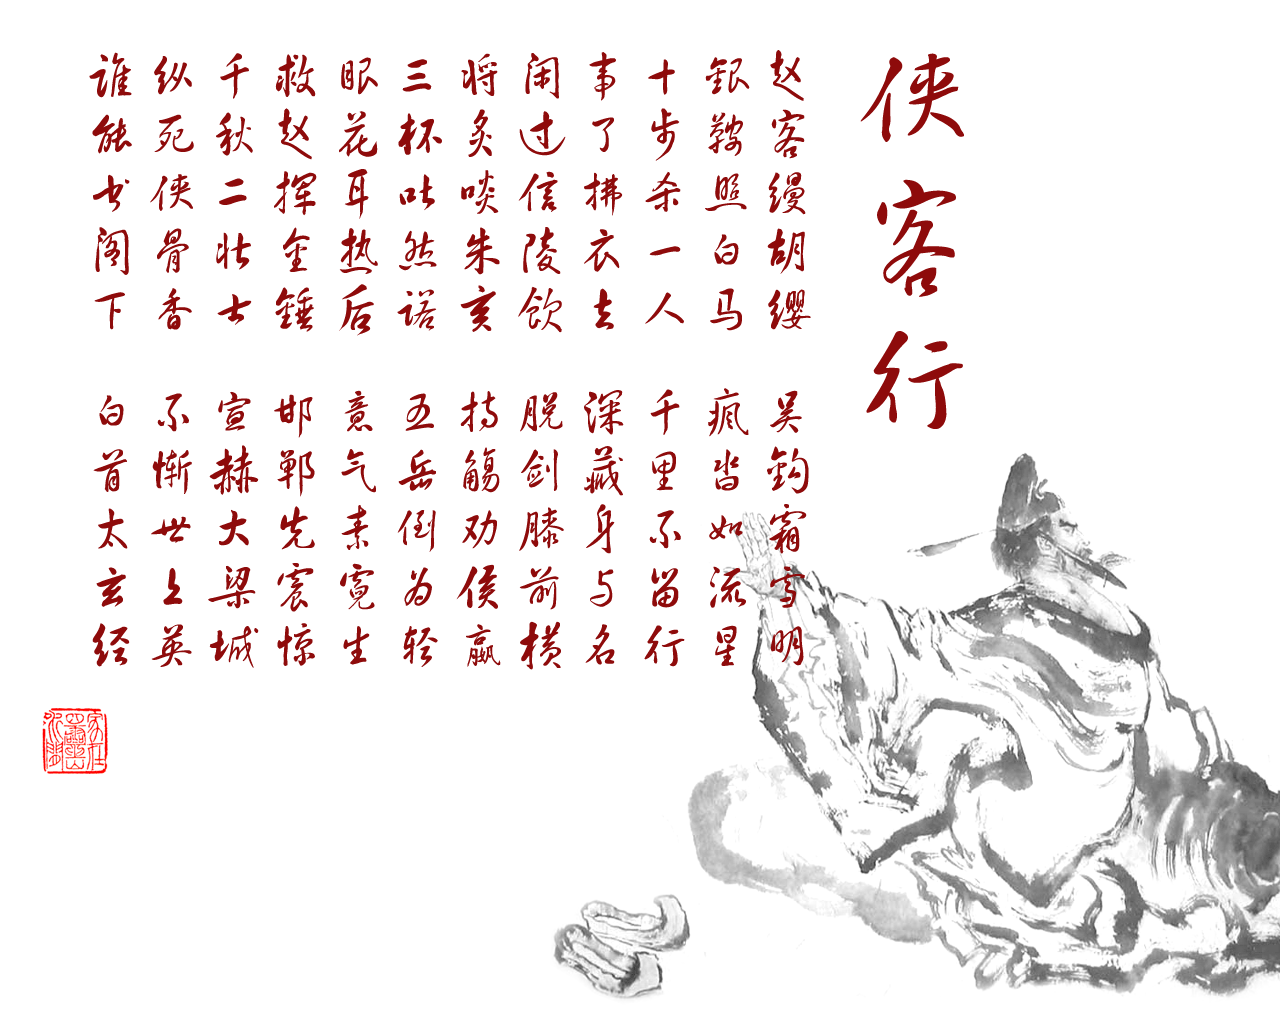 侠客行
赵客缦胡缨 吴钩霜雪明
银鞍照白马 疯沓如流星
十步杀一人 千里不留行
事了拂衣去 深藏身与名
闲过信陵饮 脱剑膝前横
将炙啖朱亥 持觞劝侯嬴
三杯吐然诺 五岳倒为轻
眼花耳热后 意气素霓生
救赵挥金锤 邯郸先震惊
千秋二壮士 宣赫大梁城
纵死侠骨香 不惭世上英
谁能书阁下 白首太玄经